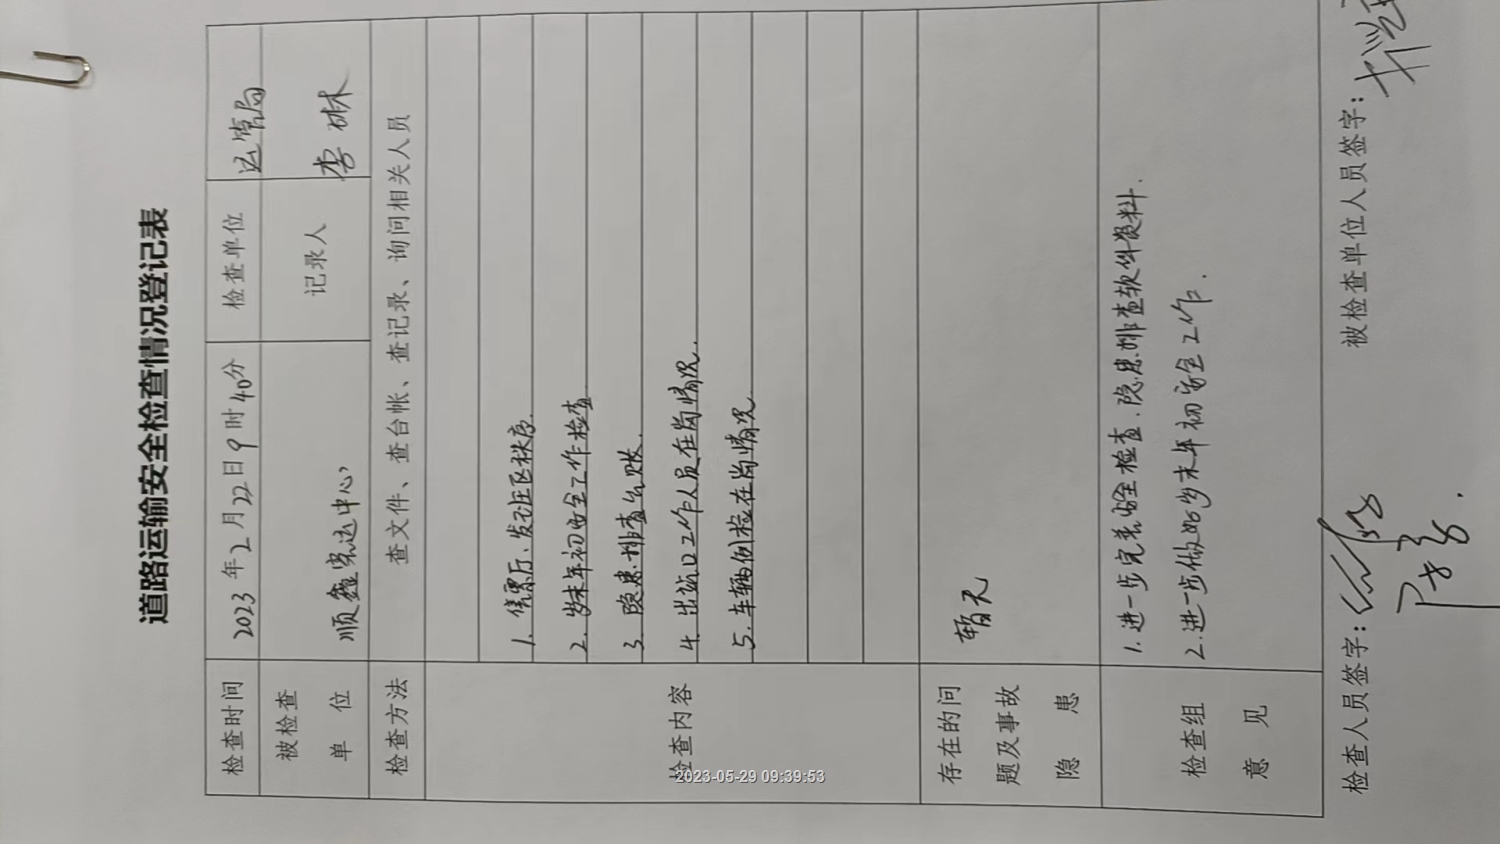 道路运输安全检查情况登记表
检查时间 2023年2月22日9时40分 检查单位 运管局
被检查单位 顺鑫客运中心 记录人 李琳
检查方法 查文件、查台帐、查记录、询问相关人员
检查内容
1. 售票厅、发班区秩序.
2. 岁末年初安全工作检查
3. 隐患排查台账.
4. 出站口工作人员在岗情况.
5. 车辆例检在岗情况.
存在的问题及事故隐患 暂无
检查组意见
1. 进一步完善安全检查.隐患排查软件资料.
2. 进一步做好岁末年初安全工作.
检查人员签字:
被检查单位人员签字:
2023-05-29 09:39:53